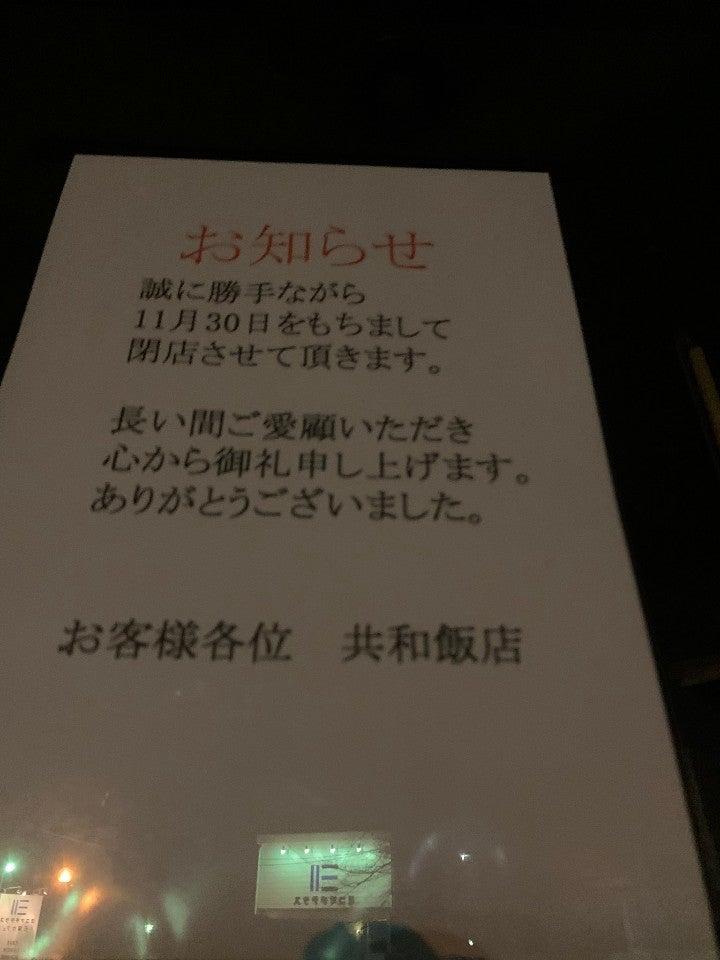 お知らせ
誠に勝手ながら
11月30日をもちまして
閉店させて頂きます。
長い間ご愛顧いただき
心から御礼申し上げます。
ありがとうございました。
お客様各位　共和飯店